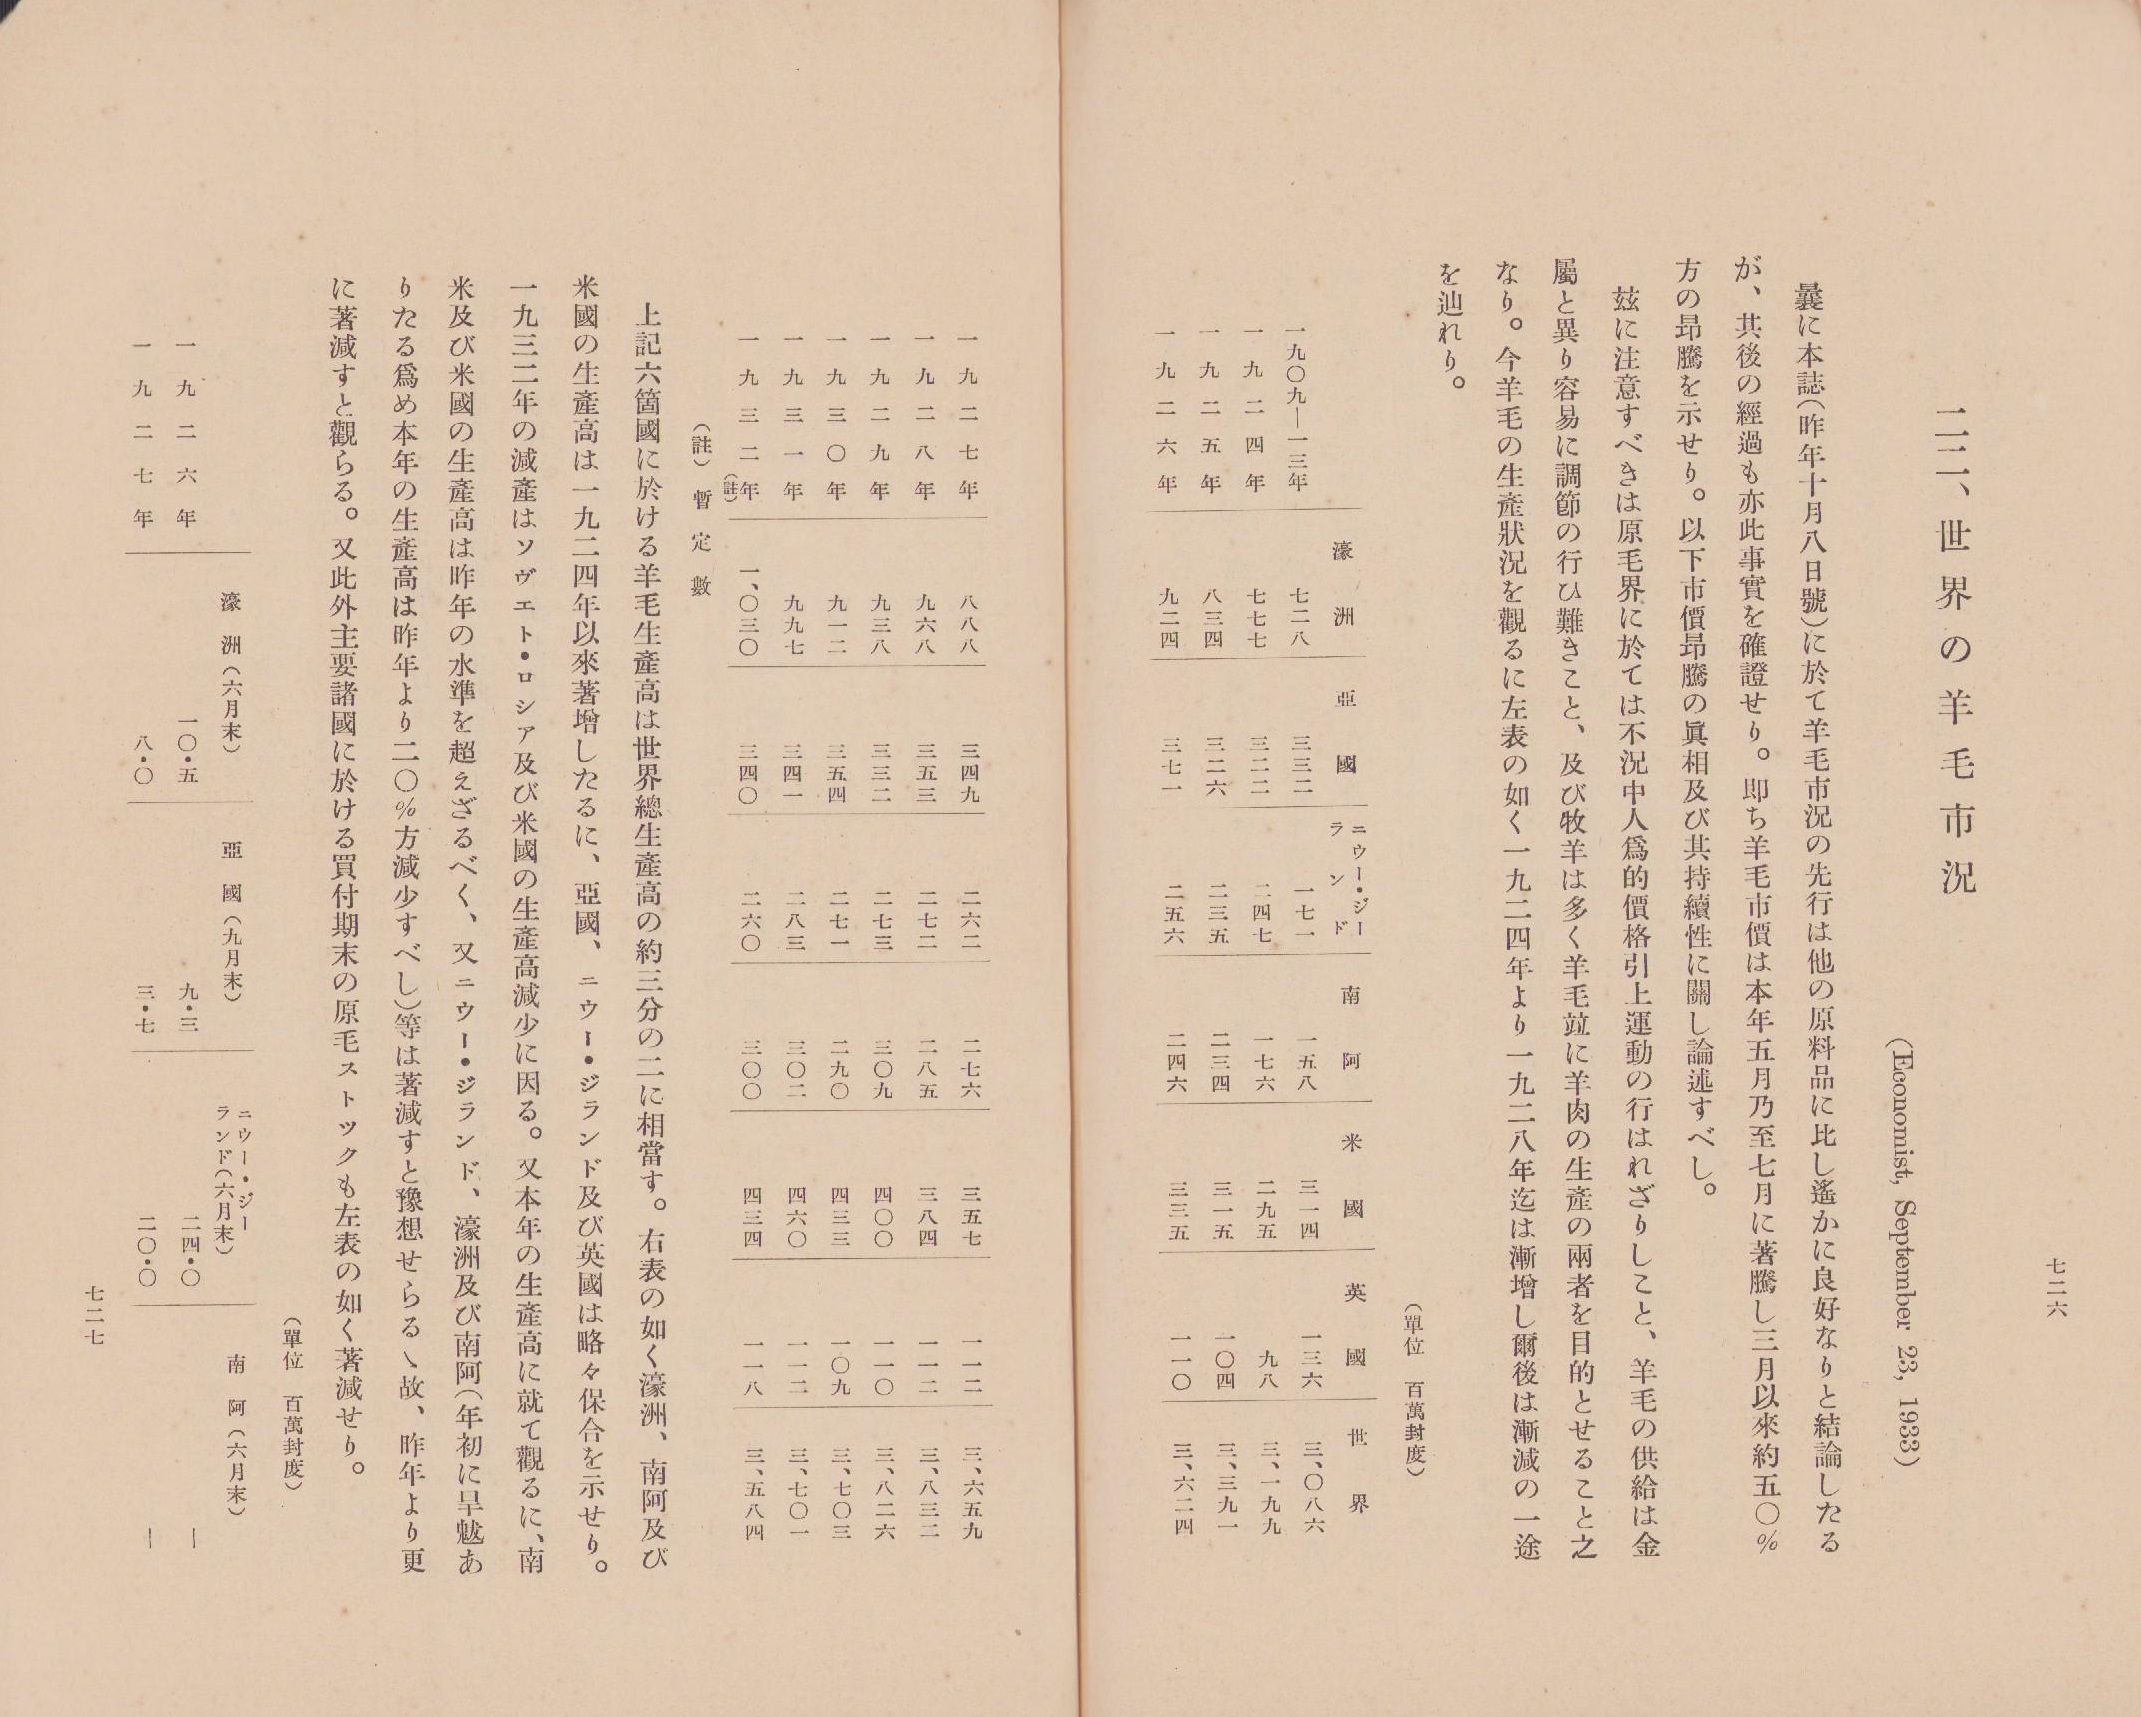 七二六
二二、世界の羊毛市況
(Economist, September 23, 1933)
曩に本誌(昨年十月八日號)に於て羊毛市況の先行は他の原料品に比し遙かに良好なりと結論したる
が、其後の經過も亦此事實を確證せり。即ち羊毛市價は本年五月乃至七月に著騰し三月以來約五〇%
方の昻騰を示せり。以下市價昻騰の眞相及び其持續性に關し論述すべし。
玆に注意すべきは原毛界に於ては不況中人爲的價格引上運動の行はれざりしこと、羊毛の供給は金
屬と異り容易に調節の行ひ難きこと、及び牧羊は多く羊毛竝に羊肉の生產の兩者を目的とせること之
なり。今羊毛の生產狀況を觀るに左表の如く一九二四年より一九二八年迄は漸增し爾後は漸減の一途
を辿れり。
(單位 百萬封度)
濠洲 亞國 ニウー・ジーランド 南阿 米國 英國 世界
一九〇九—一三年 七二八 三三二 一七一 一五八 三一四 一三六 三、〇八六
一九二四年 七七七 三二二 二四七 一七六 二九五 九八 三、一九九
一九二五年 八三四 三二六 二三五 二三四 三一五 一〇四 三、三九一
一九二六年 九二四 三七一 二五六 二四六 三三五 一一〇 三、六二四
一九二七年 八八八 三四九 二六二 二七六 三五七 一一二 三、六五九
一九二八年 九六八 三五三 二七二 二八五 三八四 一一二 三、八三二
一九二九年 九三八 三三二 二七三 三〇九 四〇〇 一一〇 三、八二六
一九三〇年 九一二 三五四 二七一 二九〇 四三三 一〇九 三、七〇三
一九三一年 九九七 三四一 二八三 三〇二 四六〇 一一二 三、七〇一
一九三二年(註) 一、〇三〇 三四〇 二六〇 三〇〇 四三四 一一八 三、五八四
(註) 暫定數
上記六箇國に於ける羊毛生產高は世界總生產高の約三分の二に相當す。右表の如く濠洲、南阿及び
米國の生產高は一九二四年以來著增したるに、亞國、ニウー・ジランド及び英國は略々保合を示せり。
一九三二年の減產はソヴェト・ロシア及び米國の生產高減少に因る。又本年の生產高に就て觀るに、南
米及び米國の生產高は昨年の水準を超ぇざるべく、又ニウー・ジランド、濠洲及び南阿(年初に旱魃あ
りたる爲め本年の生產高は昨年より二〇%方減少すべし)等は著減すと豫想せらるゝ故、昨年より更
に著減すと觀らる。又此外主要諸國に於ける買付期末の原毛ストックも左表の如く著減せり。
(單位 百萬封度)
濠洲(六月末) 亞國(九月末) ニウー・ジーランド(六月末) 南阿(六月末)
一九二六年 一〇・五 九・三 二四・〇 —
一九二七年 八・〇 三・七 二〇・〇 —
七二七